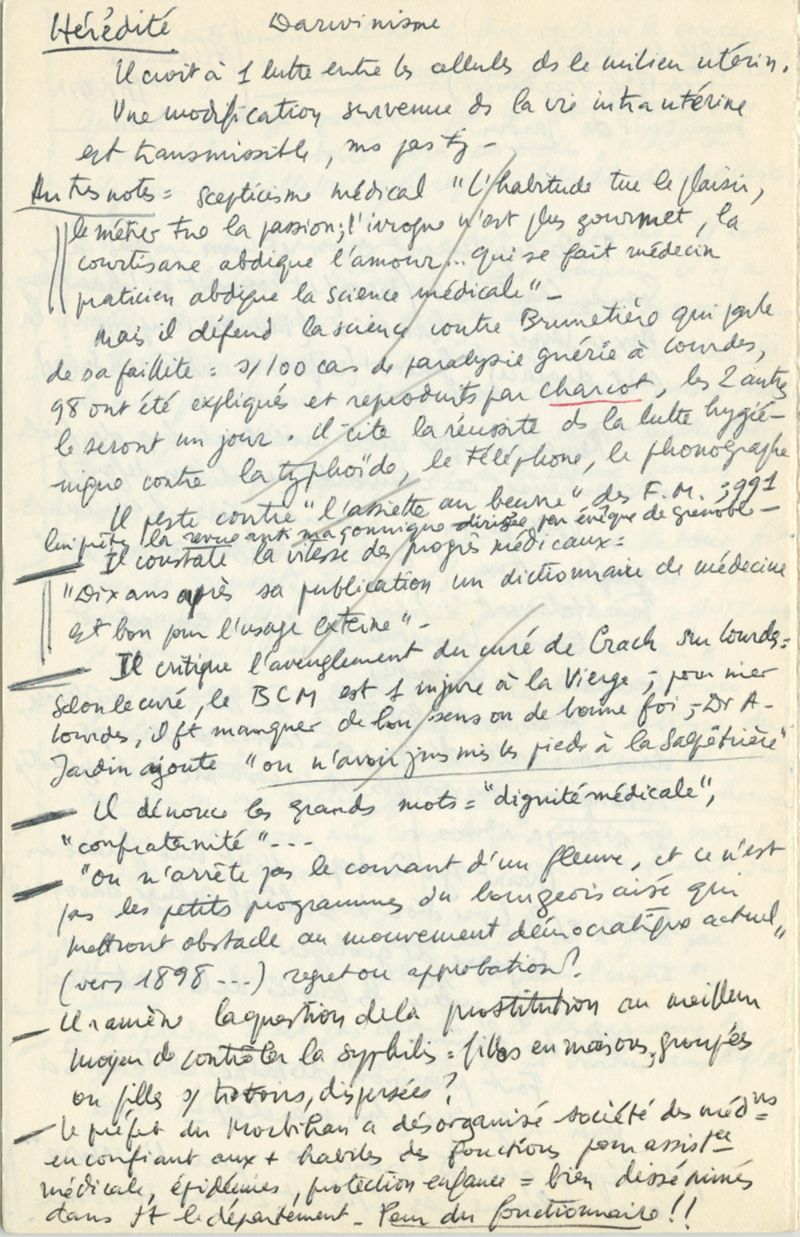 Hérédité Darwinisme
Il croit à 1 lutte entre les cellules ds le milieu utérin.
Une modification survenue ds la vie intra utérine
est transmissible, ms pas tjs -
Autres notes = scepticisme médical "L'habitude tue le plaisir,
le métier tue la passion; l'ivrogne n'est plus gourmet, la
courtisane abdique l'amour... qui se fait médecin
praticien abdique la science médicale" -
Mais il défend la science contre Brunetière qui parle
de sa faillite = s/100 cas de paralysie guérie à Lourdes,
98 ont été expliqués et reproduits par Charcot, les 2 autres
le seront un jour. Il cite la réussite ds la lutte hygié-
nique contre la typhoïde, le téléphone, le phonographe
Il peste contre "l'assiette au beurre" des F.M. ;
lui prête la revue anti maçonnique dirigée par évêque de Grenoble -
Il constate la vitesse des progrès médicaux =
"Dix ans après sa publication un dictionnaire de médecine
est bon pour l'usage externe" -
Il critique l'aveuglement du curé de Crach sur Lourdes =
Selon le curé, le BCM est 1 injure à la Vierge ; pour nier
Lourdes, il ft manquer de bon sens ou de bonne foi ; Dr A-
Jardin ajoute "ou n'avoir jms mis les pieds à la Salpêtrière"
Il dénonce les grands mots = "dignité médicale",
"confraternité" ---
"On n'arrête pas le courant d'un fleuve, et ce n'est
pas les petits programmes du bourgeois aisé qui
mettront obstacle au mouvement démocratique actuel"
(vers 1898 ...) regret ou approbation ?
Il ramène la question de la prostitution au meilleur
moyen de contrôler la syphilis = filles en maisons, groupées
ou filles s/ trottoirs, dispersées ?
Le préfet du Morbihan a désorganisé société des médns =
en confiant aux + habiles des fonctions pour assistce
médicale, épidémies, protection enfance = bien disséminés
dans tt le département - Peur du fonctionnaire !!